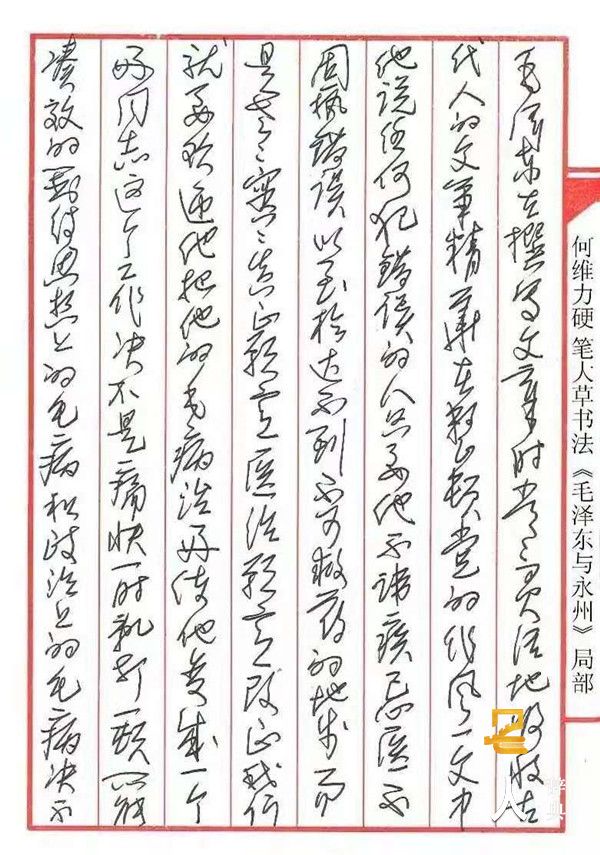 毛泽东在撰写文章时常常灵活地吸收古
代人的文笔精华在整顿党的作风一文中
他说任何犯错误的人只要他不讳疾忌医不
固执错误以至于达不到不可救药的地步而
是老老实实真正愿意医治愿意改正我们
就要欢迎他把他的毛病治好使他变成一个
好同志这个工作决不是痛快一时乱打一顿所能
凑效的对待思想上的毛病和政治上的毛病决不
何维力硬笔大草书法《毛泽东与永州》局部
人
辞典